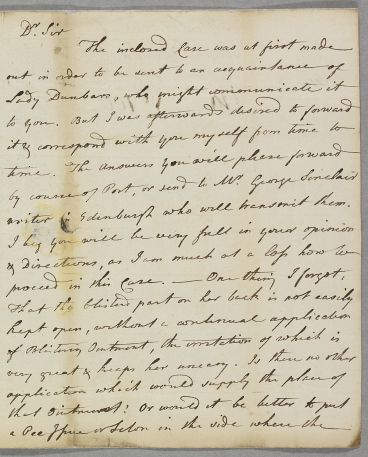 Dr. Sir
The inclosed Case was at first made
out in order to be sent to an acquaintance of
Lady Dunbars, who might communicate it
to you. But I was afterwards desired to forward
it & correspond with you myself from time to
time. The answers you will please forward
by course of Post, or send to Mr. George Sinclair
writer in Edenburgh who will transmit them.
I beg you will be very full in your opinion
& Directions, as I am much at a loss how to
proceed in this Case. — One thing I forgot,
That the blister'd part on her back is not easily
kept open, without a continual application
of Blistering Ointment, the irritation of which is
very great & keeps her uneasy. Is there no other
application which would supply the place of
that Ointment? Or would it be better to put
a Pea Issue or Seton in the side where the